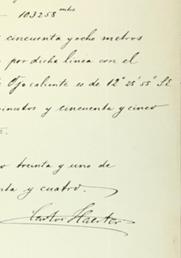 103258 mts
cincuenta y ocho metros
por dicha linea con el
Ojocaliente es de 12° 25' 55"
minutos y cincuenta y cinco
treinta y uno de
y cuatro.